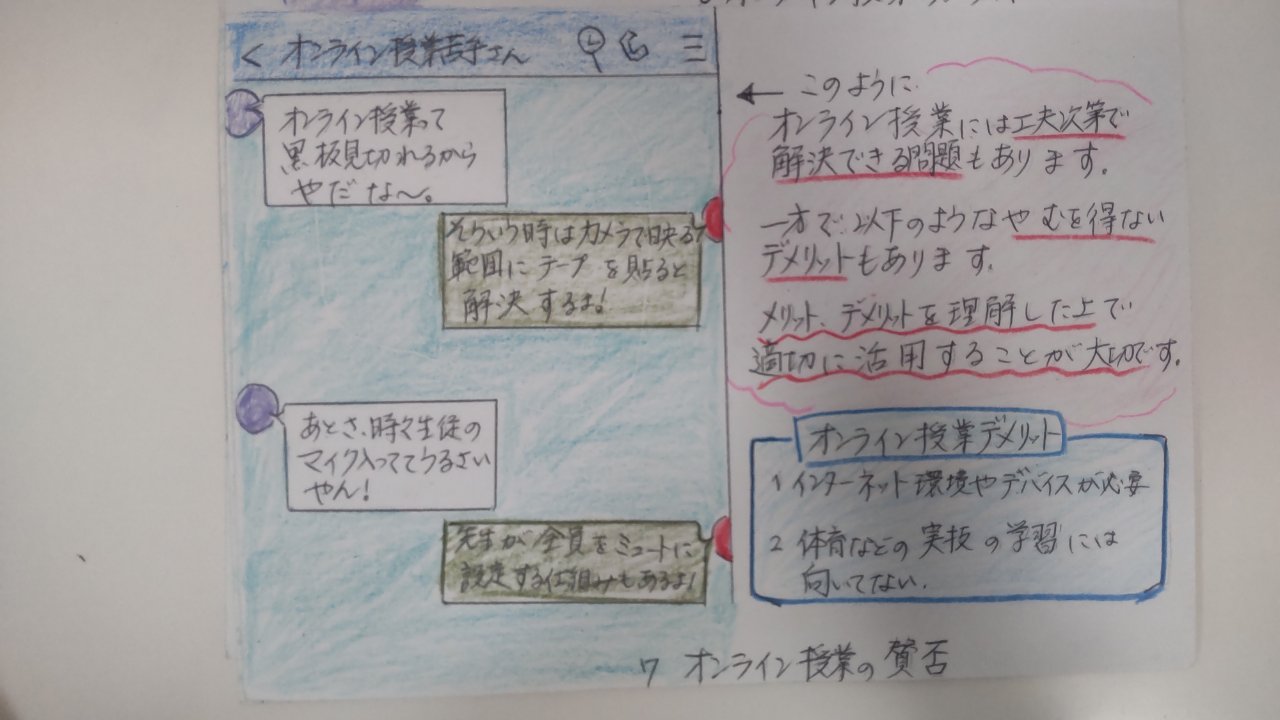 < オンライン授業苦手さん
オンライン授業って
黒板見切れるから
やだな〜。
そういう時はカメラで映る
範囲にテープを貼ると
解決するよ!
あとさ、時々生徒の
マイク入っててうるさい
やん!
先生が全員をミュートに
設定する仕組みもあるよ!
← このように
オンライン授業には工夫次第で
解決できる問題もあります。
一方で、以下のようなやむを得ない
デメリットもあります。
メリット、デメリットを理解した上で
適切に活用することが大切です。
オンライン授業デメリット
1 インターネット環境やデバイスが必要
2 体育などの実技の学習には
向いてない.
7 オンライン授業の賛否